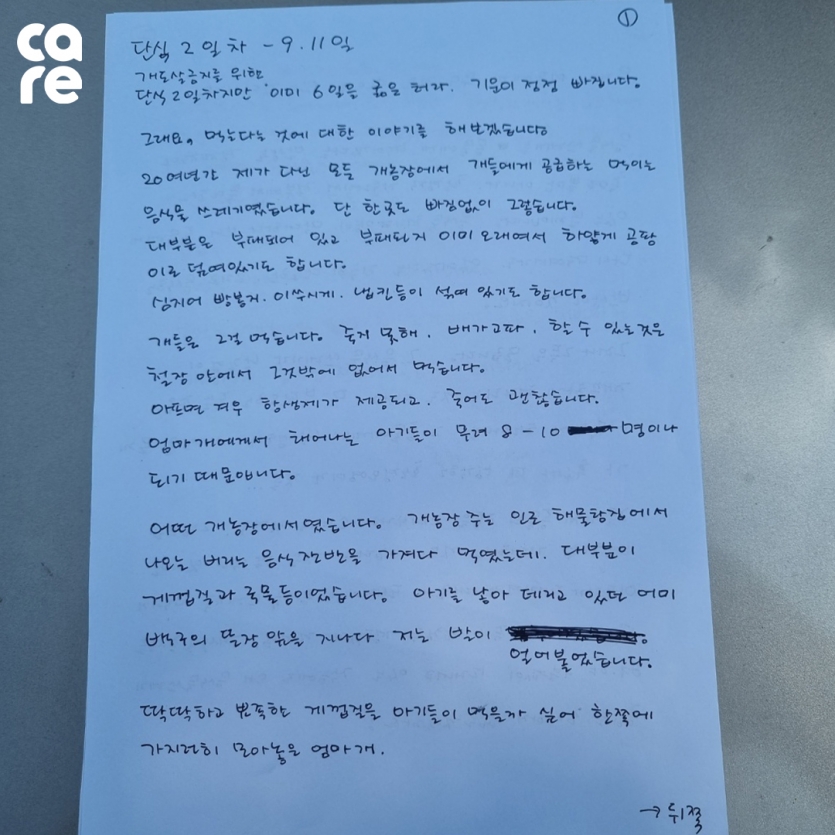 care
①
단식 2일차 - 9. 11일
개도살금지를 위한
단식 2일차지만 이미 6일을 굶은 터라. 기운이 점점 빠집니다.
그래요, 먹는다는 것에 대한 이야기를 해보겠습니다
20여년간 제가 다닌 모든 개농장에서 개들에게 공급하는 먹이는
음식물 쓰레기였습니다. 단 한곳도 빠짐없이 그랬습니다.
대부분은 부패되어 있고 부패된지 이미 오래여서 하얗게 곰팡
이로 덮여있기도 합니다.
심지어 빵봉지. 이쑤시게. 냅킨등이 섞여 있기도 합니다.
개들은 그걸 먹습니다. 죽지 못해. 배가고파. 할 수 있는것은
철장 안에서 그것밖에 없어서 먹습니다.
아프면 겨우 항생제가 제공되고. 죽어도 괜찮습니다.
엄마개에게서 태어나는 아기들이 무려 8-10 명이나
되기 때문입니다.
어떤 개농장에서였습니다. 개농장 주는 인근 해물탕집에서
나오는 버리는 음식잔반을 가져다 먹였는데. 대부분이
게껍질과 국물등이었습니다. 아기를 낳아 데리고 있던 어미
백구의 뜬장 앞을 지나다 저는 발이
얼어붙었습니다.
딱딱하고 뾰족한 게껍질을 아기들이 먹을까 싶어 한쪽에
가지런히 모아놓은 엄마개.
→ 뒤쪽